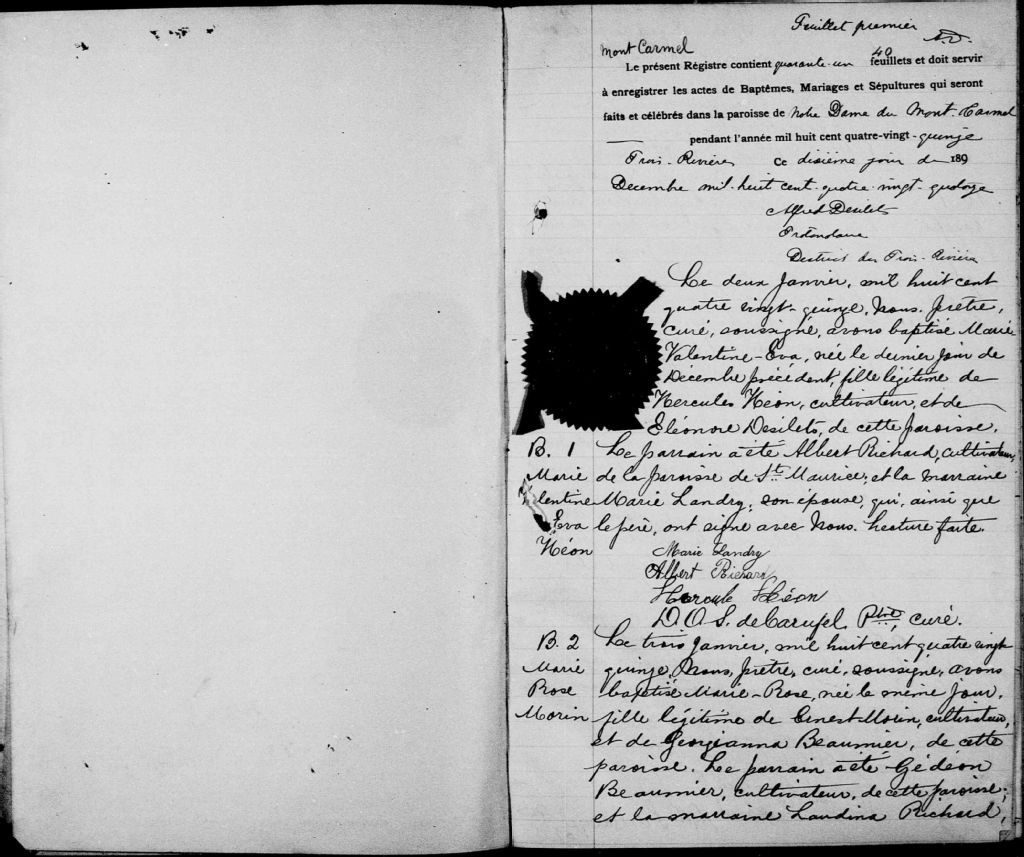 Feuillet premier
A.D.
Mont Carmel
Le présent Régistre contient quarante-un 40 feuillets et doit servir
à enregistrer les actes de Baptêmes, Mariages et Sépultures qui seront
faits et célébrés dans la paroisse de Notre Dame du Mont-Carmel
pendant l'année mil huit cent quatre-vingt-quinze
Trois-Rivières Ce dixième jour de 189
Decembre mil-huit cent-quatre-vingt-quatorze
Alfred Desilets
Protonotaire
District des Trois-Rivières
Le deux Janvier, mil huit cent
quatre vingt-quinze, Nous, prêtre,
curé, soussigné, avons baptisé Marie
Valentine-Eva, née le dernier jour de
Décembre précédent, fille légitime de
Hercules Héon, cultivateur, et de
Eléonore Desilets, de cette paroisse.
B. 1 Le parrain a été Albert Richard, cultivateur,
Marie de la paroisse de St Maurice; et la marraine
Valentine Marie Landry, son épouse, qui, ainsi que
Eva le père, ont signé avec Nous. lecture faite.
Héon Marie Landry
Albert Richard
Hercule Héon
D. O. S. de Carufel, Ptre, curé.
B. 2 Le trois Janvier, mil huit cent quatre vingt
Marie quinze, Nous, prêtre, curé, soussigné, avons
Rose baptisé Marie-Rose, née le même jour,
Morin fille légitime de Ernest Morin, cultivateur,
et de Georgianna Beaumier, de cette
paroisse. Le parrain a été Gédéon
Beaumier, cultivateur, de cette paroisse;
et la marraine Landina Richard,